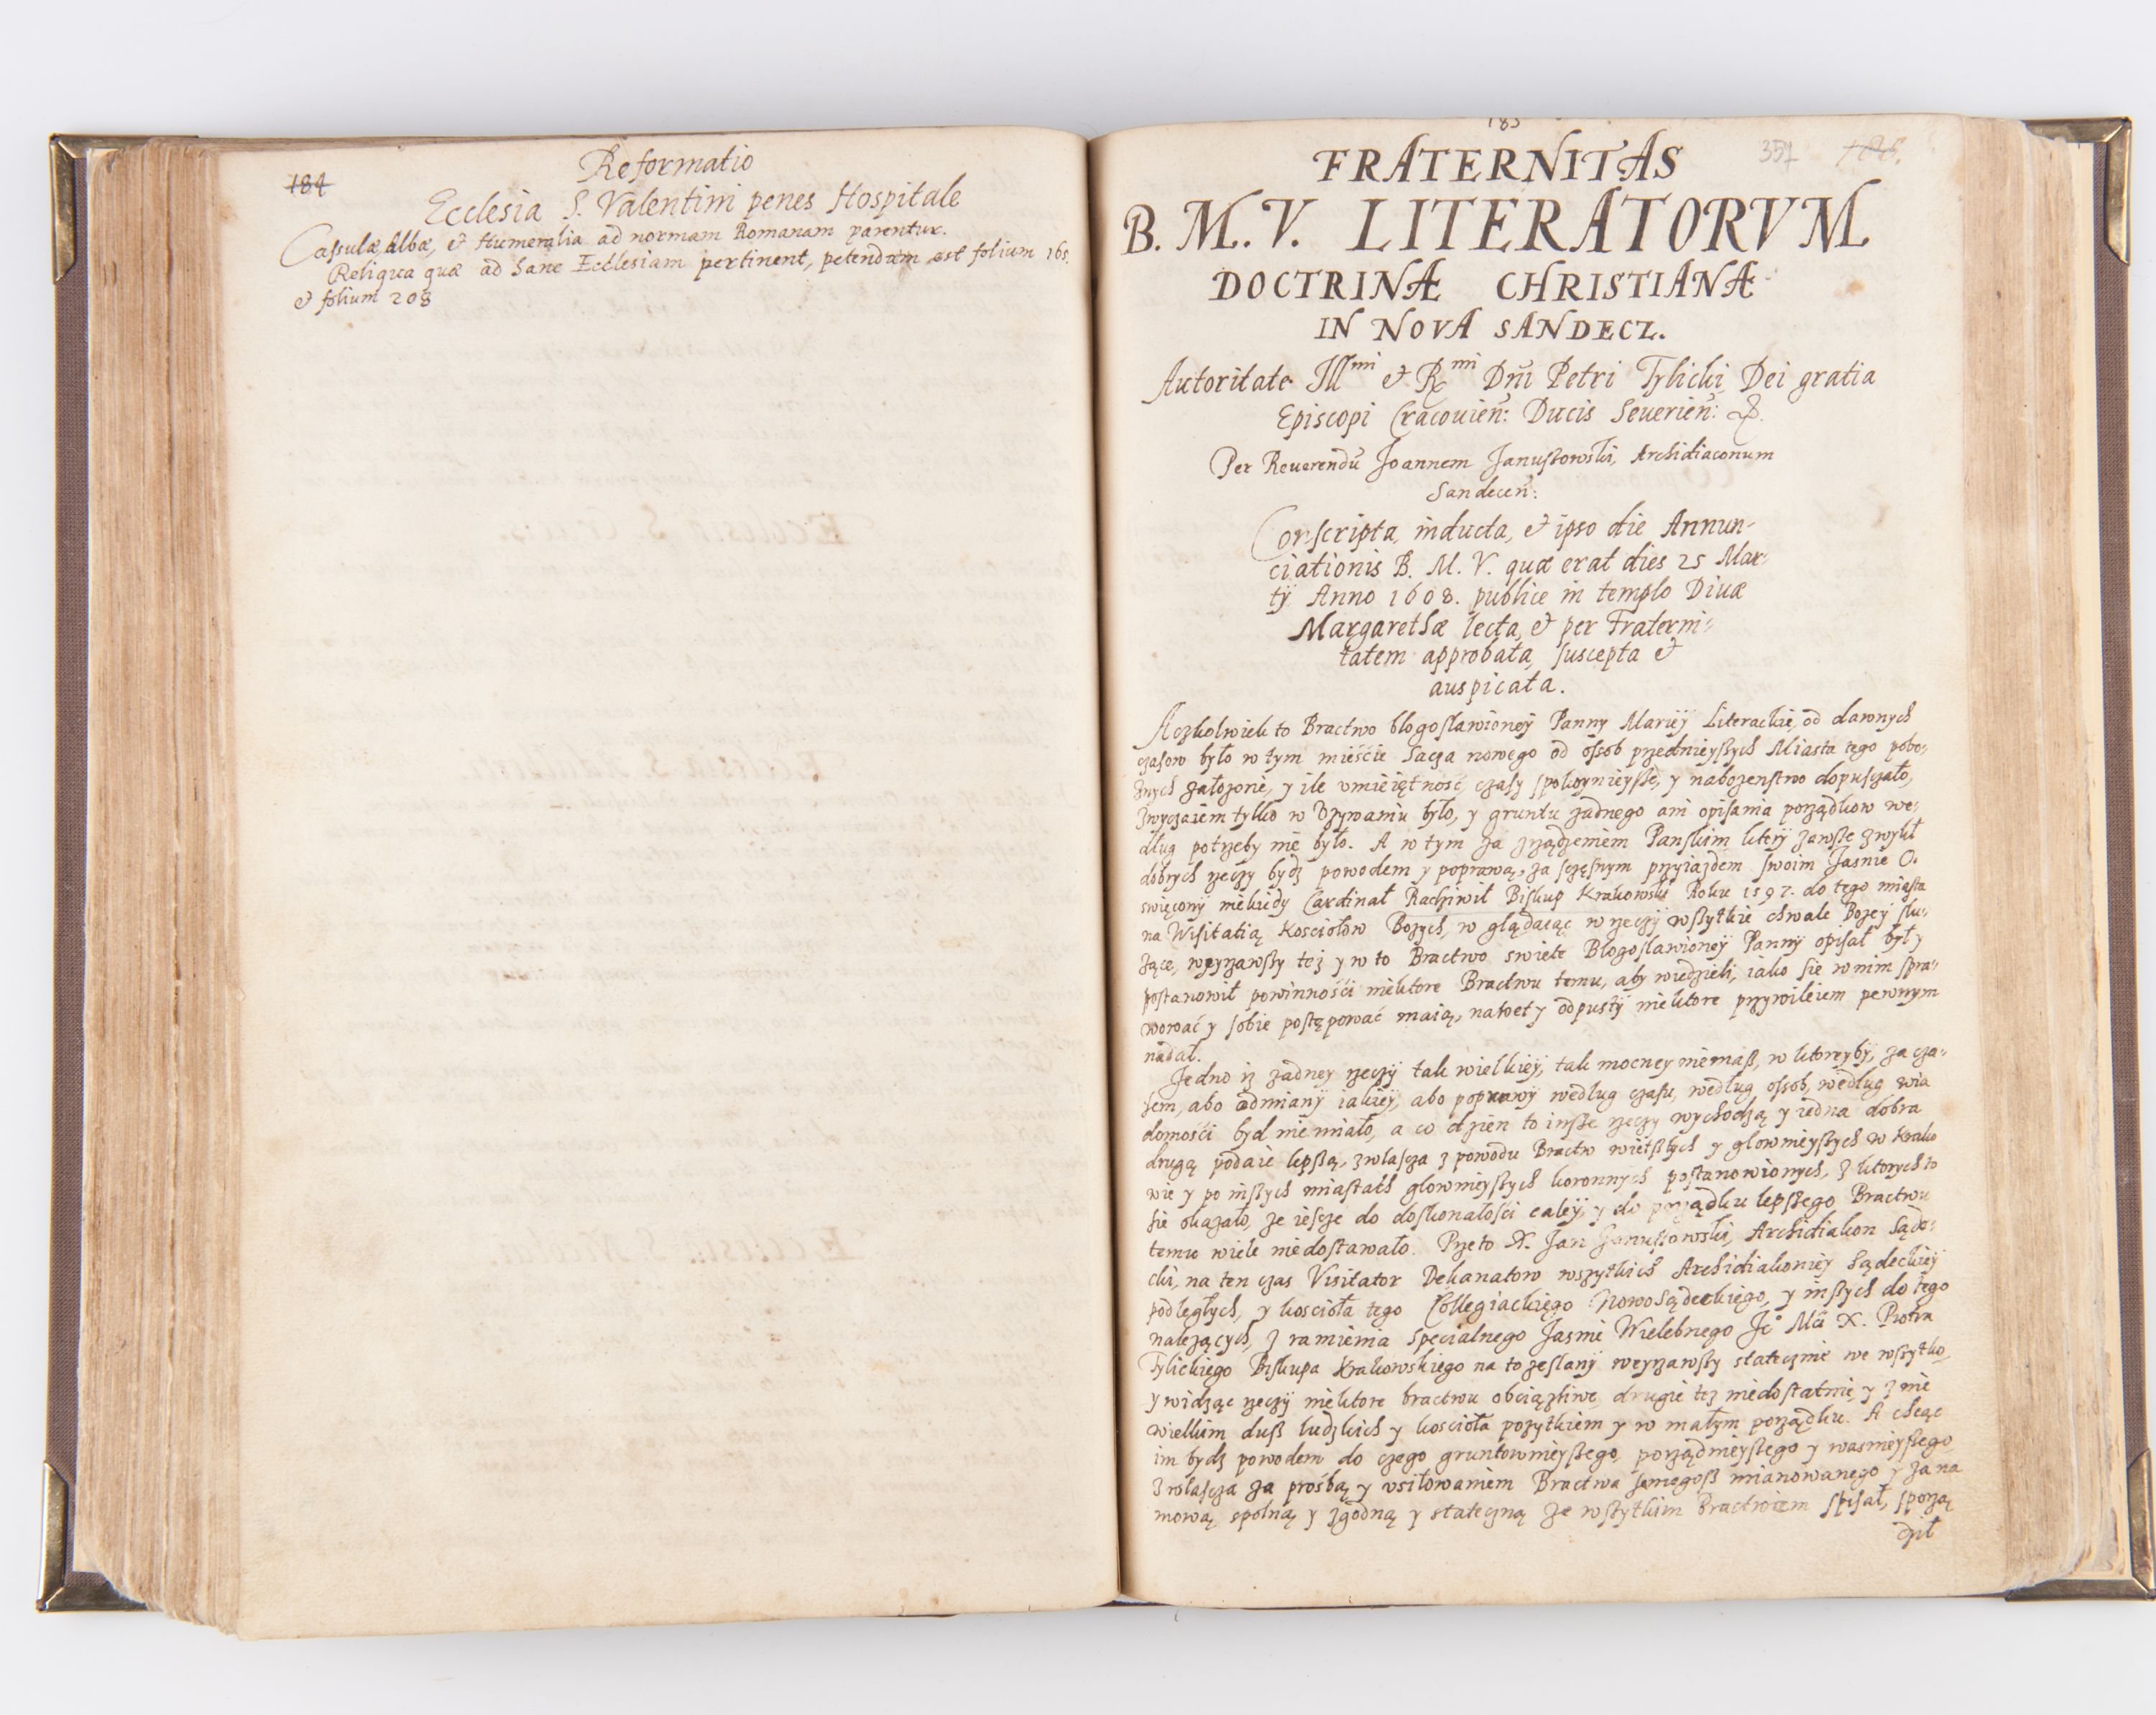 184
Reformatio
Ecclesia S. Valentini penes Hospitale
Casulæ, Albæ, et Humeralia ad normam Romanam parentur.
Reliqua quæ ad hanc Ecclesiam pertinent, petendum est folium 165.
et folium 208
185
357
FRATERNITAS
B. M. V. LITERATORVM
DOCTRINÆ CHRISTIANÆ
IN NOVA SANDECZ.
Autoritate Illmi et Rmi Dñi Petri Tylicki Dei gratia
Episcopi Cracouien: Ducis Seuerien: &.
Per Reuerendũ Joannem Januszowski, Archidiaconum
Sandecen:
Conscripta, inducta, et ipso die Annun-
ciationis B. M. V. quæ erat dies 25 Mar-
tÿ Anno 1608. publice in templo Diuæ
Margarethæ lecta, et per Fraterni-
tatem approbata, suscepta et
auspicata.
Aczkolwiek to Bractwo błogosławioneÿ Panny Mariÿ Literackie, od dawnych
czasow było w tym mieście Sącza nowego od ossob przednieyszych Miasta tego pobo-
żnych założone, y ile vmieiętność, czasy spokoynieysze, y nabożenstwo dopusczało,
zwyczaiem tylko w Vżywaniu było, y gruntu żadnego ani opisania porządkow we-
dług potrzeby nie było. A w tym za zrządzeniem Panskim ktorÿ zawsze zwykł
dobrych rzeczy bydź powodem y poprawą, za sczęsnym przyiazdem swoim Jasnie O.
swięconÿ niekiedy Cardinał Radziwił Biskup Krakowski Roku 1597. do tego miasta
na Wisitatią Kosciołow Bożych, w glądaiąc w rzeczÿ wszytkie chwale Bożey słu-
żące, weyzrawszy też y w to Bractwo swiete Błogosławioneÿ Pannÿ opisał był y
postanowił powinnośći niektore Bractwu temu, aby wiedzieli, iako się w nim spra-
wować y sobie postępować maią, nawet y odpustÿ niektore przywileiem pewnym
nadał.
Jedno iż żadney rzeczÿ tak wielkieÿ, tak mocney niemasz, w ktoreybÿ, za cza-
sem, abo odmianÿ iakieÿ, abo poprawÿ według czasu, według ossob, według wia
domośći byd nie miało, a co dzien to insze rzeczy wychodzą y iedna dobra
drugą podaie lepszą, zwłascza z powodu Bractw wietszych y głownieyszych w Krako
wie y po inszych miastach głownieyszych koronnych postanowionych, z ktorych to
sie okazało, że iescze do doskonałosci całeÿ, y do porządku lepszego Bractwu
temu wiele niedostawało. Przeto X. Jan Januszowski, Archidiakon Sąde-
cki, na ten czas Visitator Dekanatow wszytkich Archidiakonieÿ Sądeckieÿ
podległych, y kościoła tego Collegiackiego Nowosądeckiego, y inszych do tego
należących, z ramienia specialnego Jasnie Wielebnego Je° Mći X. Piotra
Tylickiego Biskupa Krakowskiego na to zesłanÿ weyzrawszy statecznie we wszytko,
y widząc rzeczÿ niektore bractwu obciążliwe, drugie też niedostatnie, y z nie
wielkim dusz ludzkich y kościoła pożytkiem y w małym porządku. A chcąc
im bydź powodem do czego gruntownieyszego, porządnieyszego y ważnieyszego
zwłascza za prośbą y vsiłowaniem Bractwa samegosz mianowanego y za na
mową spolną y zgodną y stateczną ze wszytkim Bractwem spisał, sporzą
dził